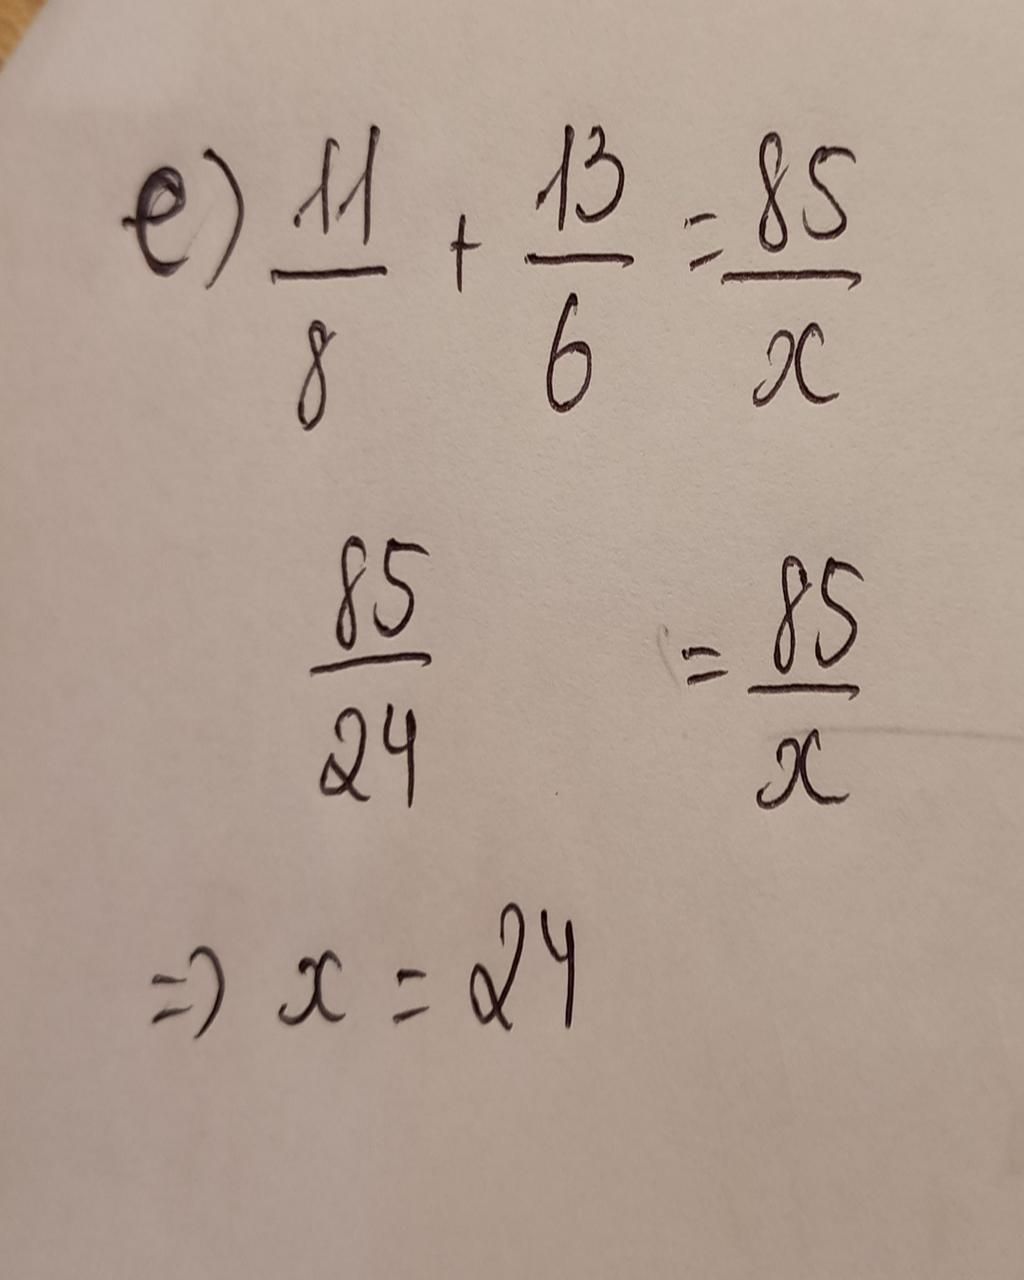 e) 11/8 + 13/6 = 85/x
85/24 = 85/x
=> x = 24